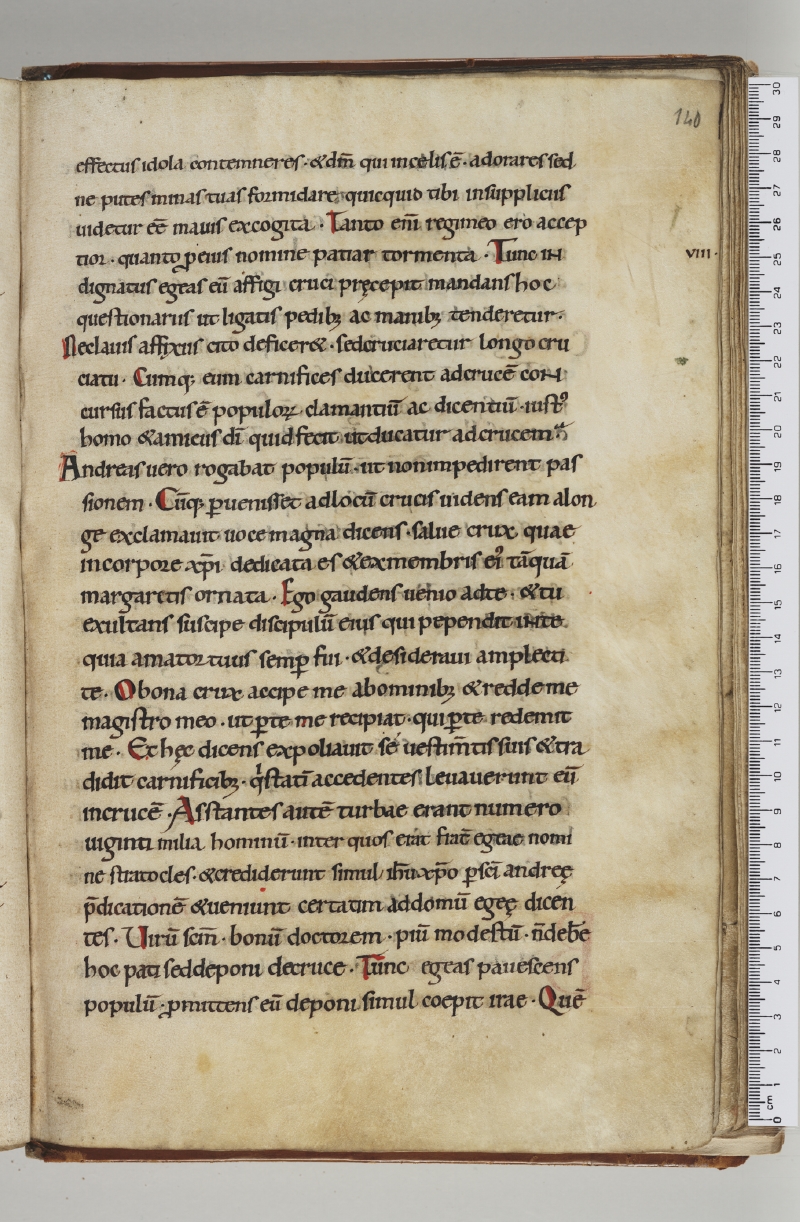 140
effectus idola contemneres · & dm̄ qui in celis ē · adorares sed
ne putes minas tuas formidare quicquid tibi in suppliciis
uidetur eē maius excogita · Tanto eni̅ regi meo ero accep
tior · quanto ꝑ eius nomine patiar tormenta · Tunc in
VIII ·
dignatus egeas eū affigi cruci pręcepit mandans hoc
questionariis ut ligatis pedibꝫ ac manibꝫ tenderetur ·
Ne clauis affixus cito defícer& · sed cruciaretur longo cru
ciatu · Cumqꝫ eum carnifices ducerent ad crucē con
cursus factus ē populoꝝ clamantiū ac dicentiū · iustꝰ
homo & amicus dī quid fecit ut ducatur ad crucem
Andreas uero rogabat populū · ut non impedirent pas
sionem · Cūqꝫ ꝑuenisset ad locū crucis uidens eam a lon
ge exclamauit uoce magna dicens · salue crux quae
in corpore xp̄i dedicata es & ex membris eiꝰ tāquā
margaretis ornata · Ego gaudens uenio ad te · & tu
exultans suscipe discipulū eius qui pependit in te
quia amator tuus semꝑ fui · & desideraui amplecti
te · O bona crux accipe me ab ominibꝫ & redde me
magistro meo · ut ꝑ te me recipiat · qui ꝑ te redemit
me · Et hęc dicens expoliauit se uestim̄tis suis & tra
didit carnificibꝫ · q̇ statī accedentes leuauerunt eū
in crucē · Asstantes autē turbae erant numero
uiginti milia hominū · inter quos erat frat̄ egeae nomi
ne stratocles · & crediderunt simul ih̄u xp̄o ꝑ sc̄i andreę
p̄dicationē & ueniunt certatim ad domū egeę dicen
tes · Uirū sc̄m · bonū doctorem · piū modestū · n̄ debē
hoc pati sed deponi de cruce · Tūnc egeas pauescens
populū · ꝓmittens eū deponi simul coepit irae · Quē